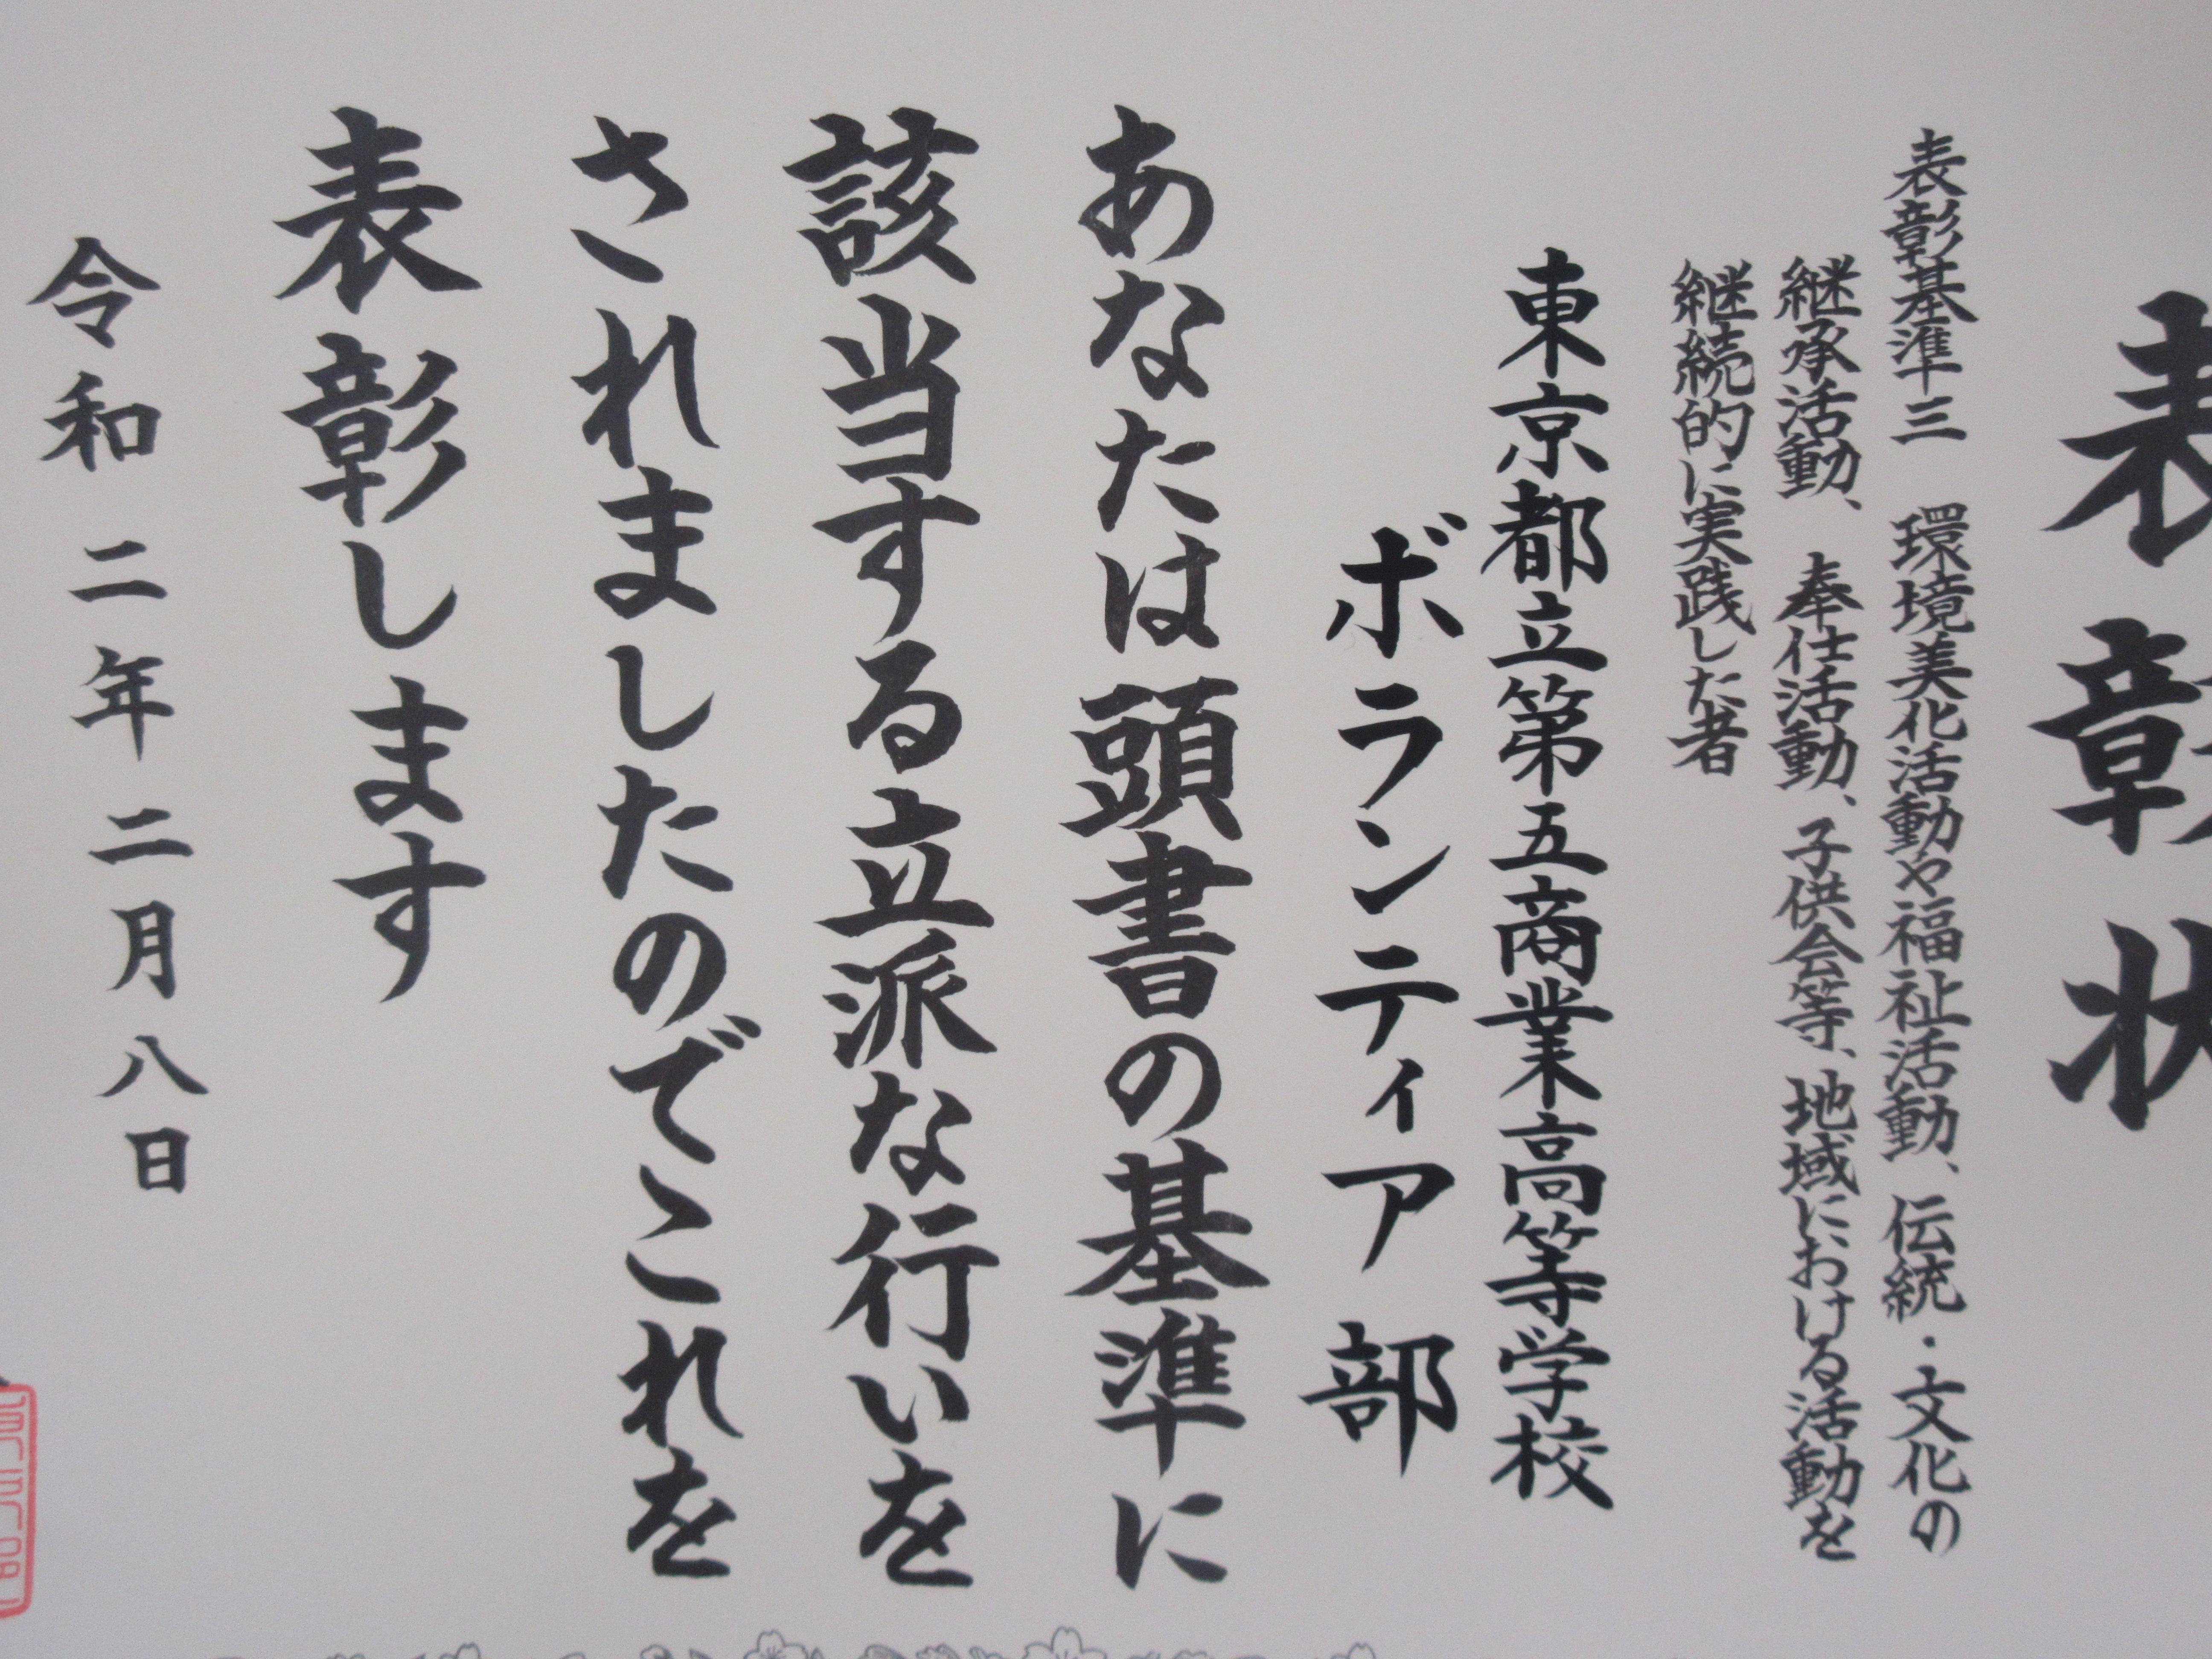 表彰状
表彰基準三　環境美化活動や福祉活動、伝統・文化の
継承活動、奉仕活動、子供会等、地域における活動を
継続的に実践した者
東京都立第五商業高等学校
ボランティア部
あなたは頭書の基準に
該当する立派な行いを
されましたのでこれを
表彰します
令和二年二月八日